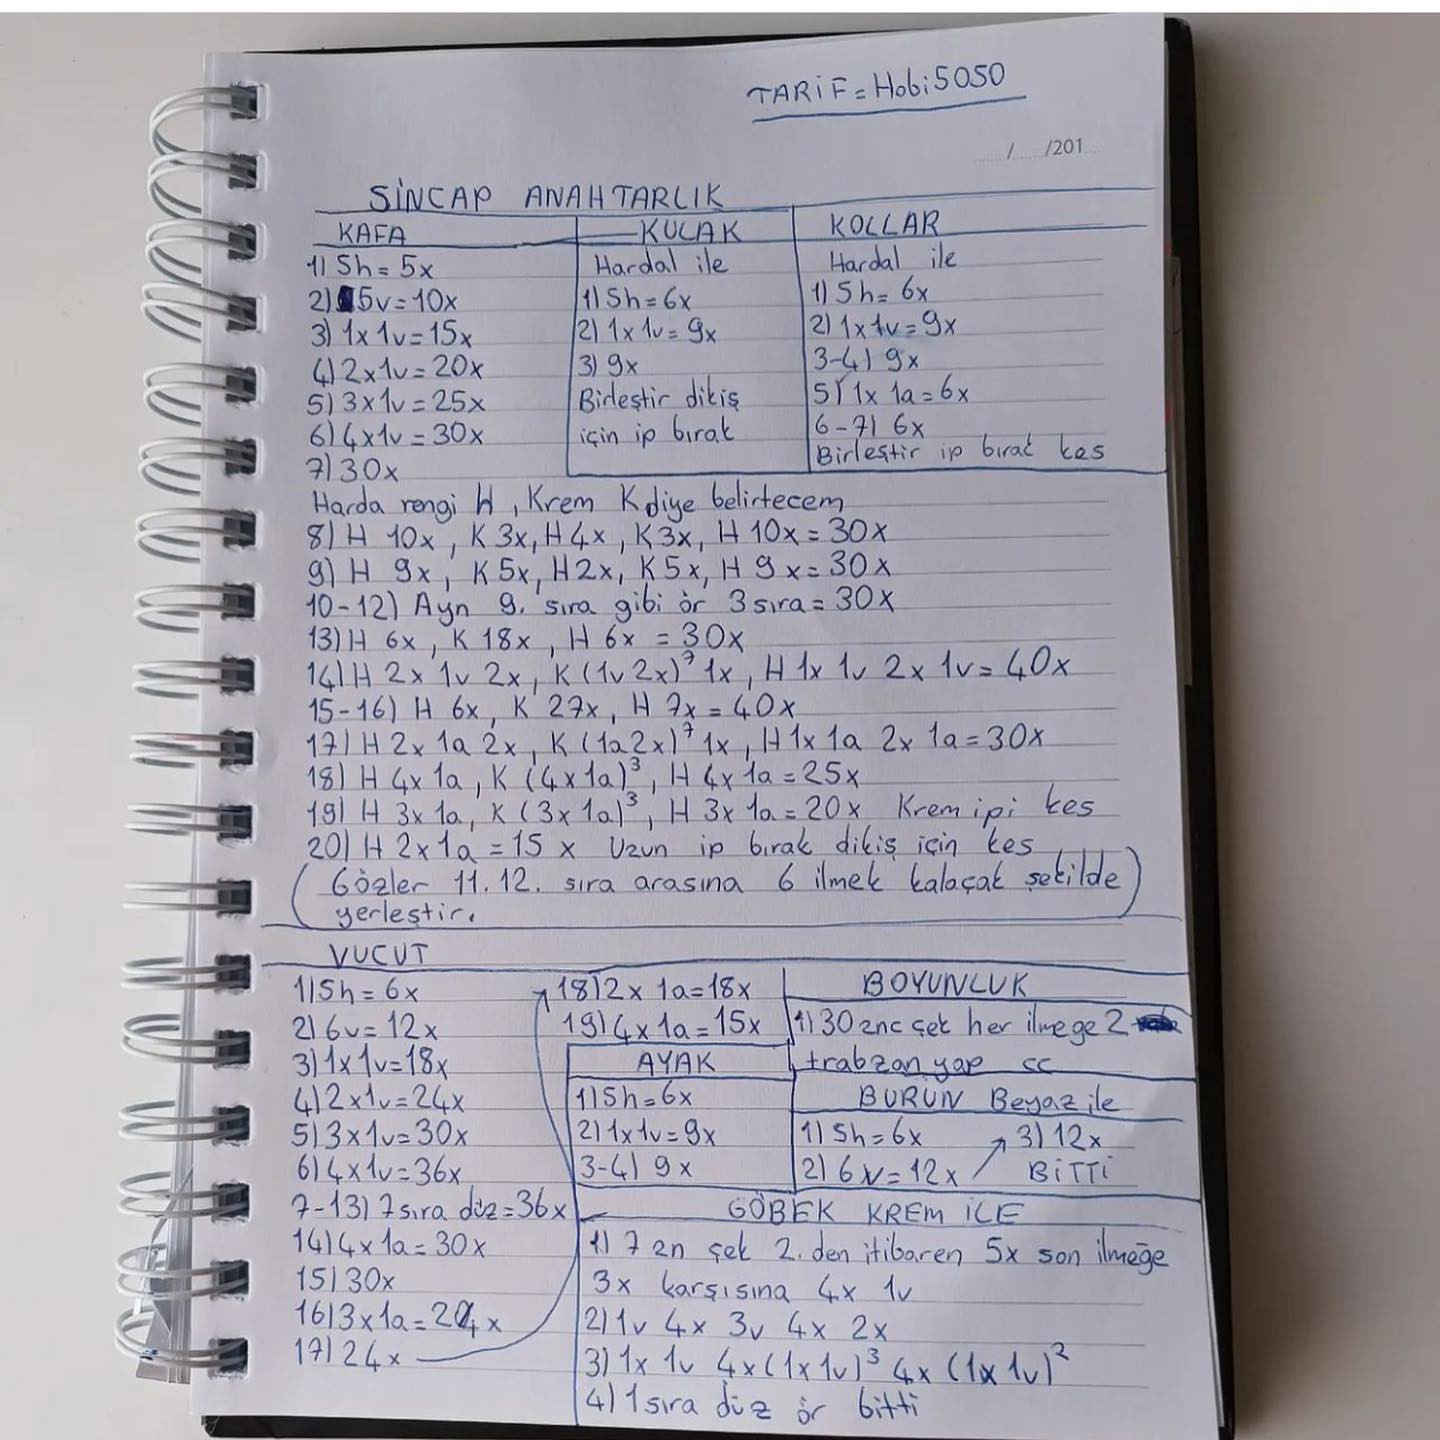 TARİF = Hobi5050
/ /201
SİNCAP ANAHTARLIK
KAFA
1) Sh = 5x
2) 5v = 10x
3) 1x 1v = 15x
4) 2x 1v = 20x
5) 3x 1v = 25x
6) 4x1v = 30x
7) 30x
KULAK
Hardal ile
1) Sh = 6x
2) 1x 1v = 9x
3) 9x
Birleştir dikiş
için ip bırak
KOLLAR
Hardal ile
1) Sh = 6x
2) 1x 1v = 9x
3-4) 9x
5) 1x 1a = 6x
6-7) 6x
Birleştir ip bırak kes
Harda rengi H , Krem K diye belirtecem
8) H 10x , K 3x, H 4x , K 3x, H 10x = 30x
9) H 9x , K 5x, H 2x, K 5x, H 9x = 30x
10-12) Ayn 9. sıra gibi ör 3 sıra = 30x
13) H 6x , K 18x , H 6x = 30x
14) H 2x 1v 2x , K (1v 2x)⁷ 1x , H 1x 1v 2x 1v = 40x
15-16) H 6x, K 27x, H 7x = 40x
17) H 2x 1a 2x , K (1a 2x)⁷ 1x , H 1x 1a 2x 1a = 30x
18) H 4x 1a , K (4x 1a)³ , H 4x 1a = 25x
19) H 3x 1a, K (3x 1a)³ , H 3x 1a = 20x Krem ipi kes
20) H 2x 1a = 15 x Uzun ip bırak dikiş için kes
( Gözler 11. 12. sıra arasına 6 ilmek kalaçak şekilde
yerleştir. )
VUCUT
1) Sh = 6x
2) 6v = 12x
3) 1x 1v = 18x
4) 2x 1v = 24x
5) 3x 1v = 30x
6) 4x 1v = 36x
7-13) 7 sıra düz = 36x
14) 4x 1a = 30x
15) 30x
16) 3x1a = 24x
17) 24x
18) 2x 1a = 18x
19) 4x 1a = 15x
BOYUNLUK
1) 30 znc çek her ilmege 2
trabzan yap cc
AYAK
1) Sh = 6x
2) 1x 1v = 9x
3-4) 9x
BURUN Beyaz ile
1) Sh = 6x
2) 6v = 12x
3) 12x
BİTTİ
GÖBEK KREM İLE
1) 7 zn çek 2. den itibaren 5x son ilmeğe
3x karşısına 4x 1v
2) 1v 4x 3v 4x 2x
3) 1x 1v 4x (1x 1v)³ 4x (1x 1v)²
4) 1 sıra düz ör bitti